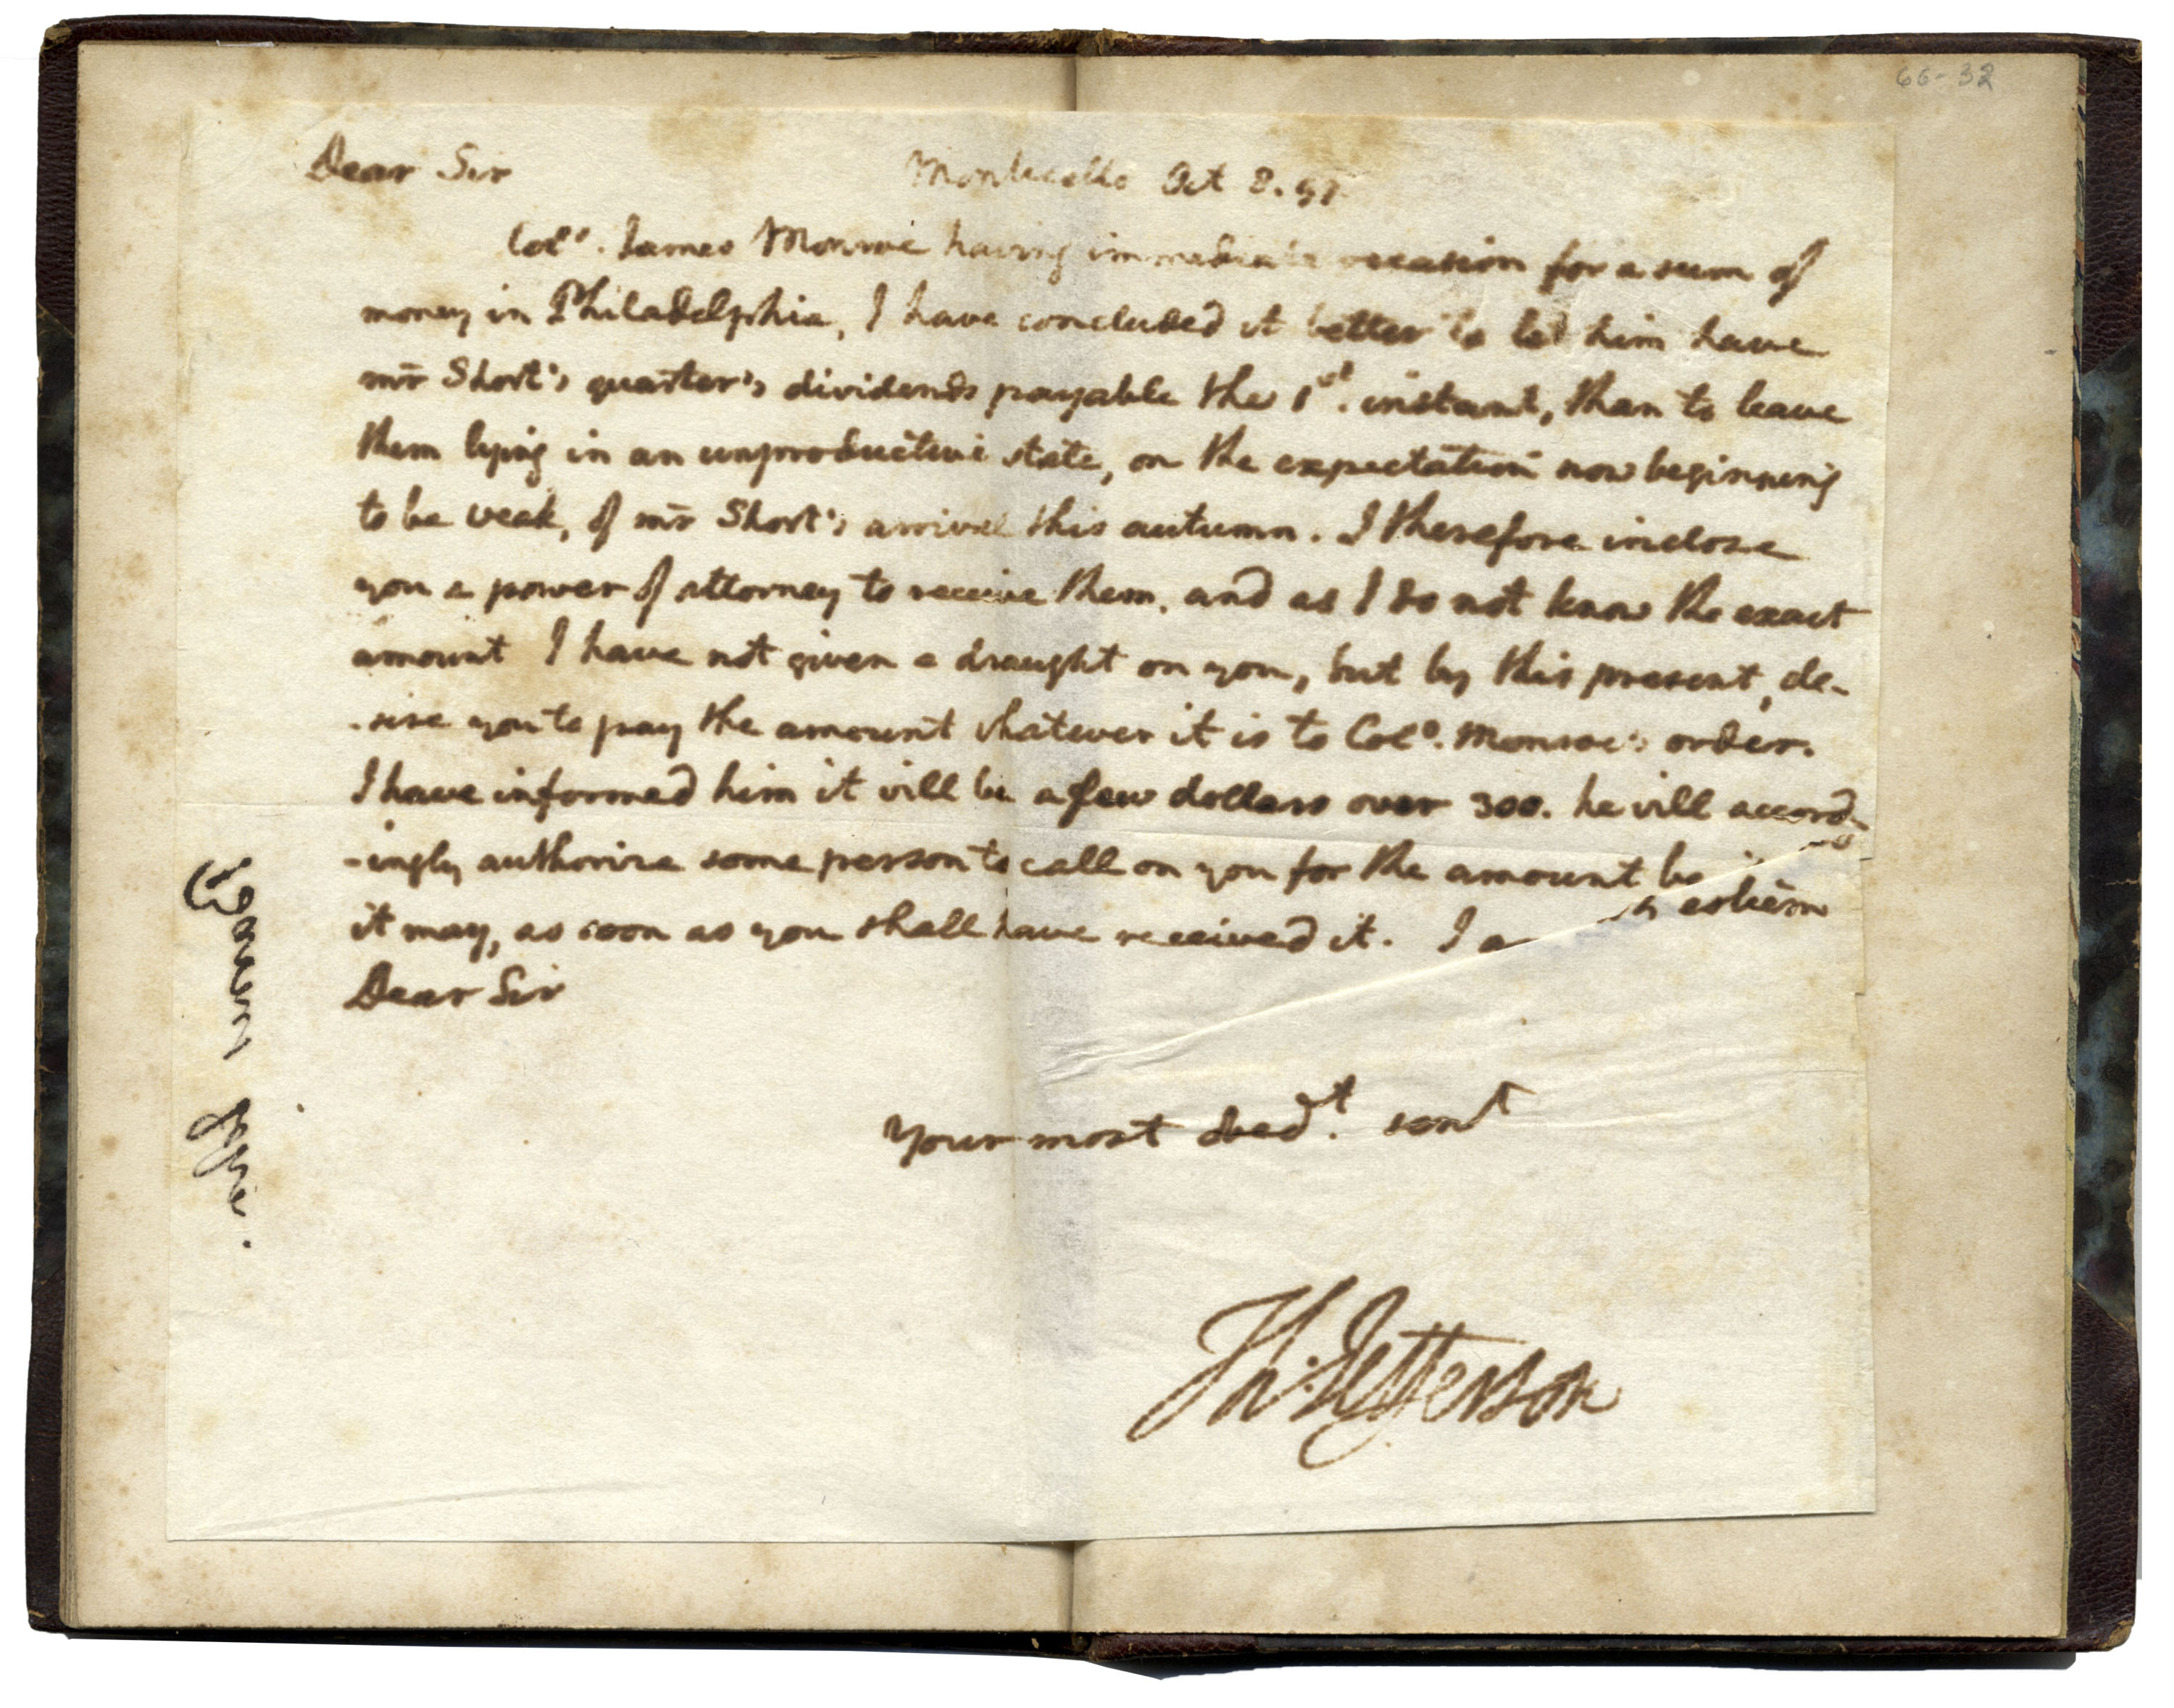 66-32
Dear Sir Monticello Oct 8. 97.
Colo. James Monroe having immediate occasion for a sum of
money in Philadelphia, I have concluded it better to let him have
mr Short's quarter's dividends payable the 1st. instant, than to leave
them lying in an unproductive state, on the expectation now beginning
to be weak, of mr Short's arrival this autumn. I therefore inclose
you a power of attorney to receive them, and as I do not know the exact
amount I have not given a draught on you, but by this present, de-
-sire you to pay the amount whatever it is to Colo. Monroe's order.
I have informed him it will be a few dollars over 300. he will accord-
-ingly authorize some person to call on you for the amount be
it may, as soon as you shall have received it. I a esteem
Dear Sir
Your most obedt. servt
Th: Jefferson